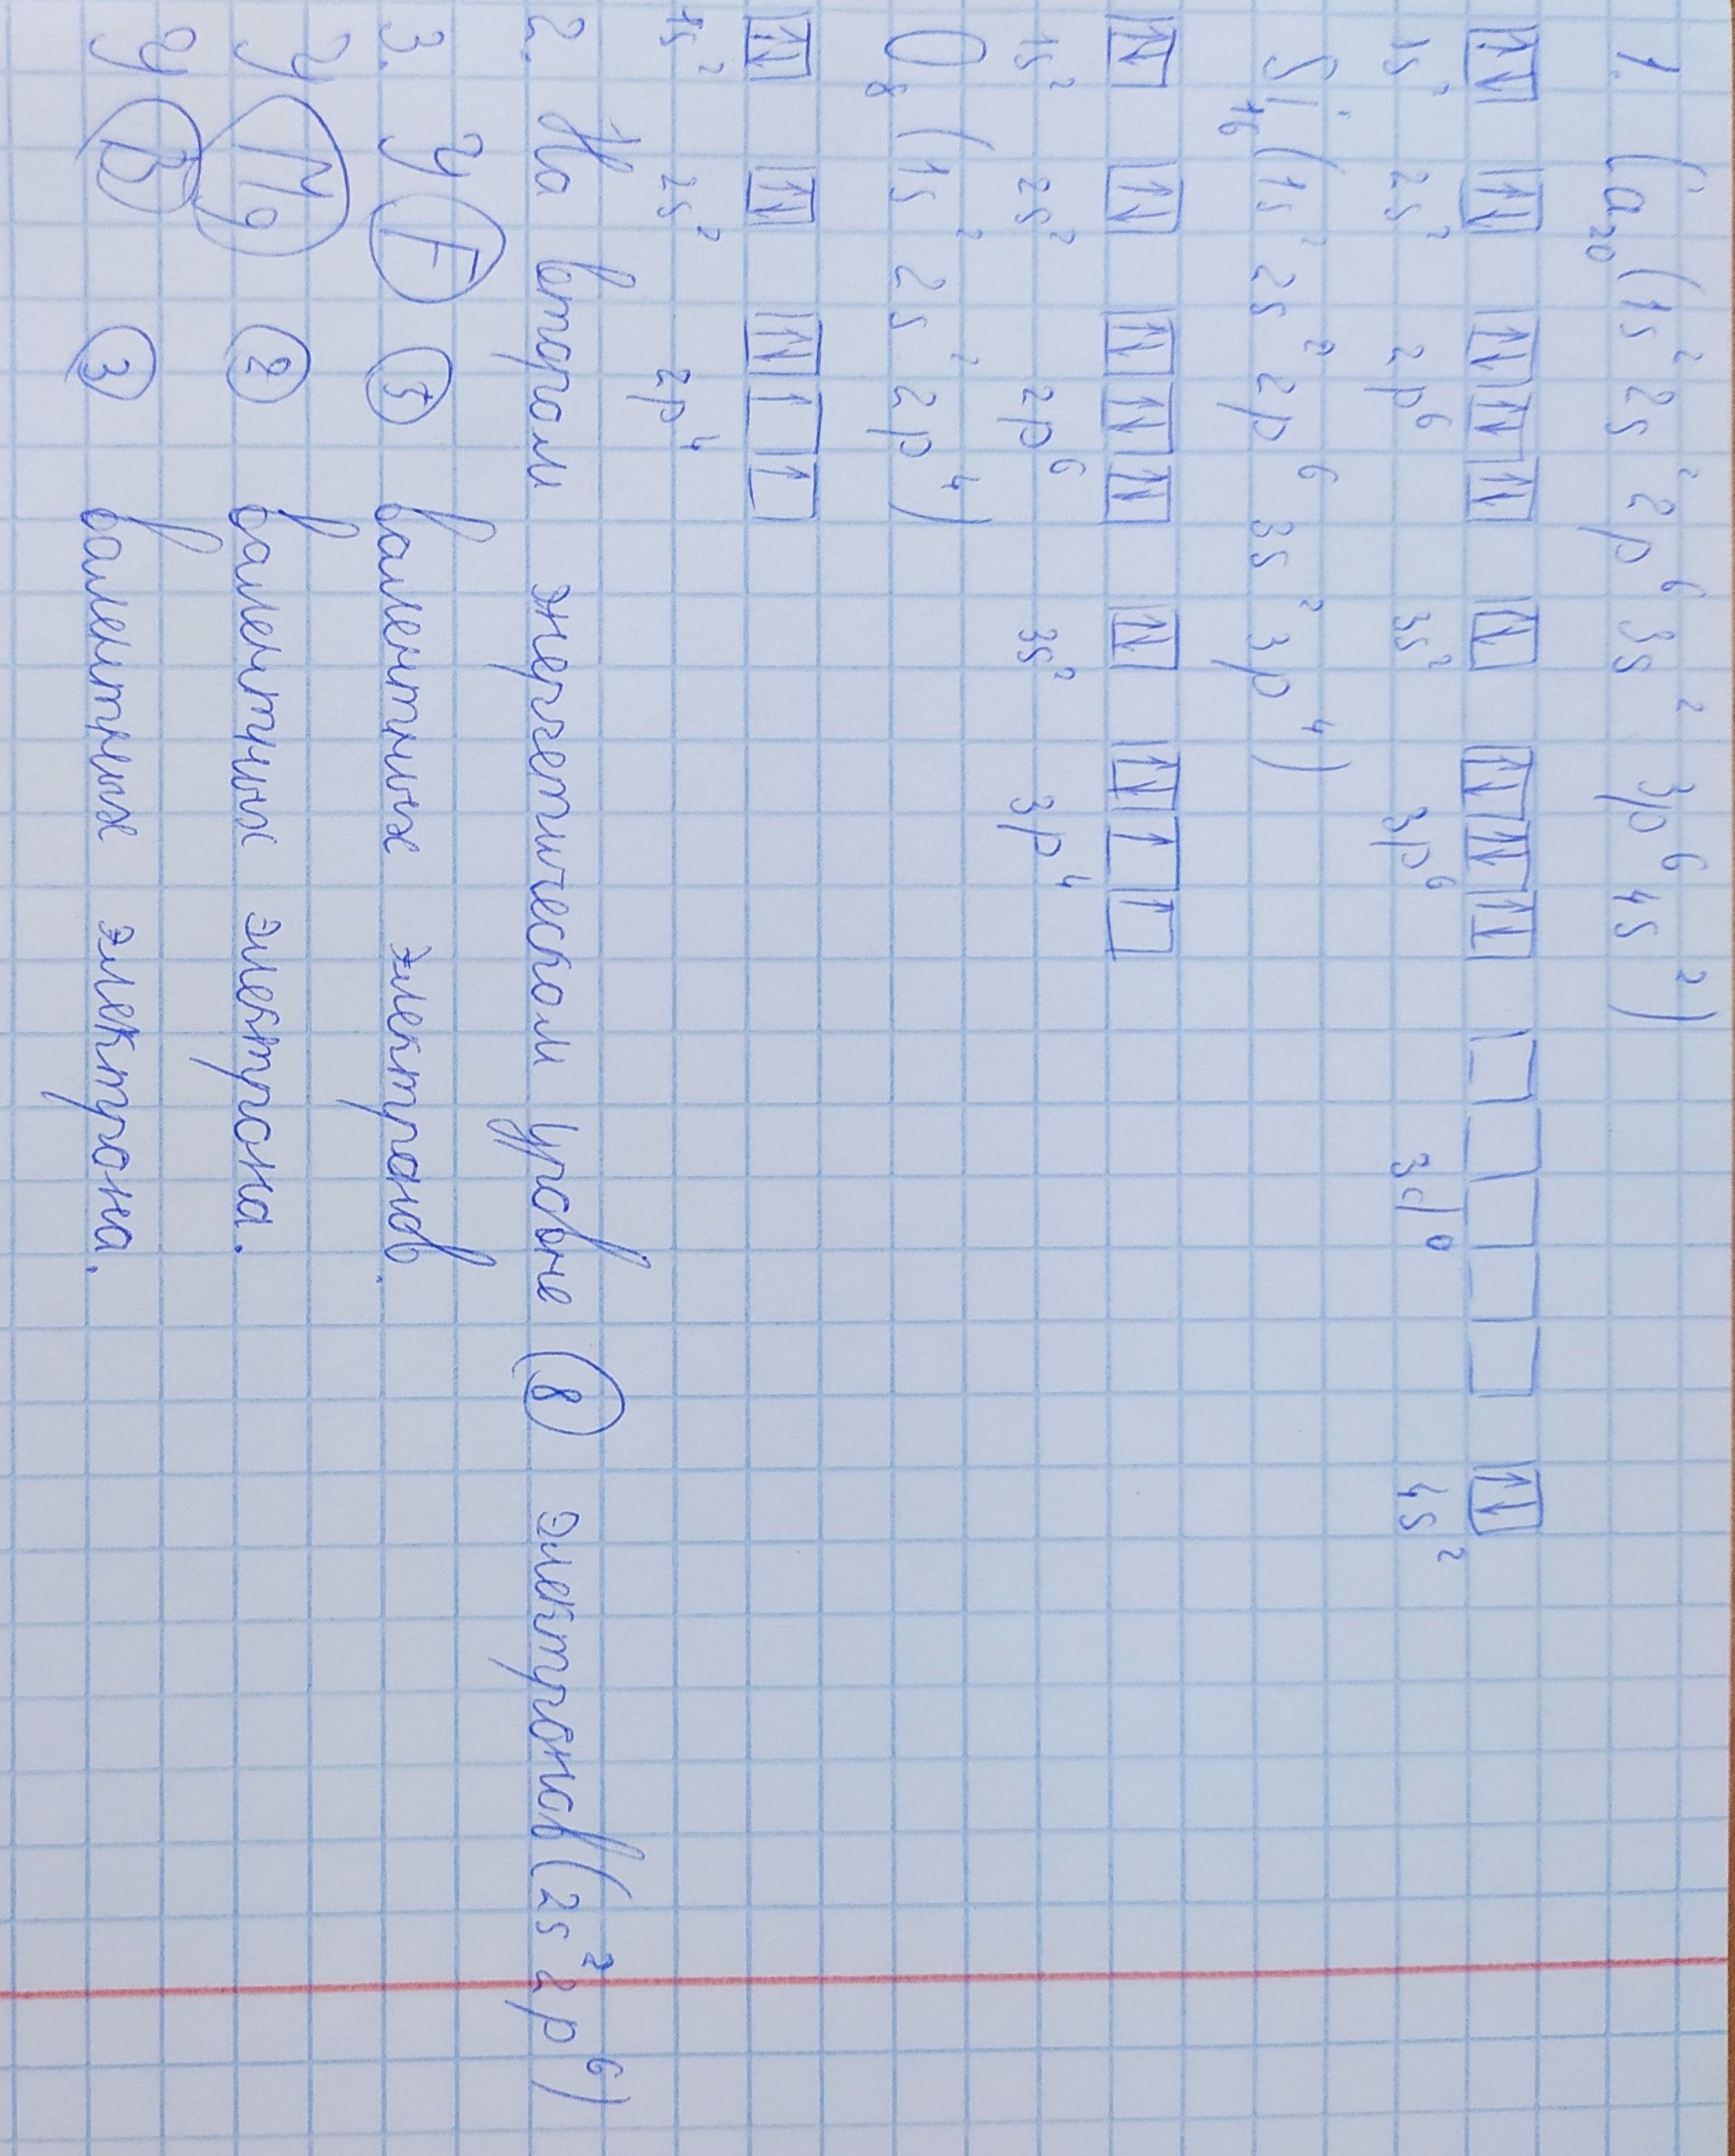 1. Ca₂₀ (1s² 2s² 2p⁶ 3s² 3p⁶ 4s²)
1s² 2s² 2p⁶ 3s² 3p⁶ 3d⁰ 4s²
Si₁₆ (1s² 2s² 2p⁶ 3s² 3p⁴)
1s² 2s² 2p⁶ 3s² 3p⁴
O₈ (1s² 2s² 2p⁴)
1s² 2s² 2p⁴
2. На втором энергетическом уровне 8 электронов (2s² 2p⁶)
3. У F валентных электронов.
У Mg 2 валентных электрона.
У B 3 валентных электрона.